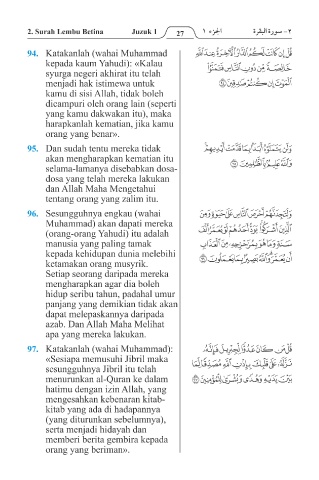 2. Surah Lembu Betina Juzuk 1 27 الجزء ١ ٢ - سورة البقرة
94. Katakanlah (wahai Muhammad
kepada kaum Yahudi): «Kalau
syurga negeri akhirat itu telah
menjadi hak istimewa untuk
kamu di sisi Allah, tidak boleh
dicampuri oleh orang lain (seperti
yang kamu dakwakan itu), maka
harapkanlah kematian, jika kamu
orang yang benar».
قُلْ إِن كَانَتْ لَكُمُ الدَّارُ الْآخِرَةُ عِندَ اللَّهِ
خَالِصَةً مِّن دُونِ النَّاسِ فَتَمَنَّوُا
الْمَوْتَ إِن كُنتُمْ صَادِقِينَ ٩٤
95. Dan sudah tentu mereka tidak
akan mengharapkan kematian itu
selama-lamanya disebabkan dosa-
dosa yang telah mereka lakukan
dan Allah Maha Mengetahui
tentang orang yang zalim itu.
وَلَن يَتَمَنَّوْهُ أَبَدًا بِمَا قَدَّمَتْ أَيْدِيهِمْ
وَاللَّهُ عَلِيمٌ بِالظَّالِمِينَ ٩٥
96. Sesungguhnya engkau (wahai
Muhammad) akan dapati mereka
(orang-orang Yahudi) itu adalah
manusia yang paling tamak
kepada kehidupan dunia melebihi
ketamakan orang musyrik.
Setiap seorang daripada mereka
mengharapkan agar dia boleh
hidup seribu tahun, padahal umur
panjang yang demikian tidak akan
dapat melepaskannya daripada
azab. Dan Allah Maha Melihat
apa yang mereka lakukan.
وَلَتَجِدَنَّهُمْ أَحْرَصَ النَّاسِ عَلَىٰ حَيَاةٍ وَمِنَ
الَّذِينَ أَشْرَكُوا يَوَدُّ أَحَدُهُمْ لَوْ يُعَمَّرُ أَلْفَ
سَنَةٍ وَمَا هُوَ بِمُزَحْزِحِهِ مِنَ الْعَذَابِ
أَن يُعَمَّرَ وَاللَّهُ بَصِيرٌ بِمَا يَعْمَلُونَ ٩٦
97. Katakanlah (wahai Muhammad):
«Sesiapa memusuhi Jibril maka
sesungguhnya Jibril itu telah
menurunkan al-Quran ke dalam
hatimu dengan izin Allah, yang
mengesahkan kebenaran kitab-
kitab yang ada di hadapannya
(yang diturunkan sebelumnya),
serta menjadi hidayah dan
memberi berita gembira kepada
orang yang beriman».
قُلْ مَن كَانَ عَدُوًّا لِّجِبْرِيلَ فَإِنَّهُ
نَزَّلَهُ عَلَىٰ قَلْبِكَ بِإِذْنِ اللَّهِ مُصَدِّقًا لِّمَا
بَيْنَ يَدَيْهِ وَهُدًى وَبُشْرَىٰ لِلْمُؤْمِنِينَ ٩٧